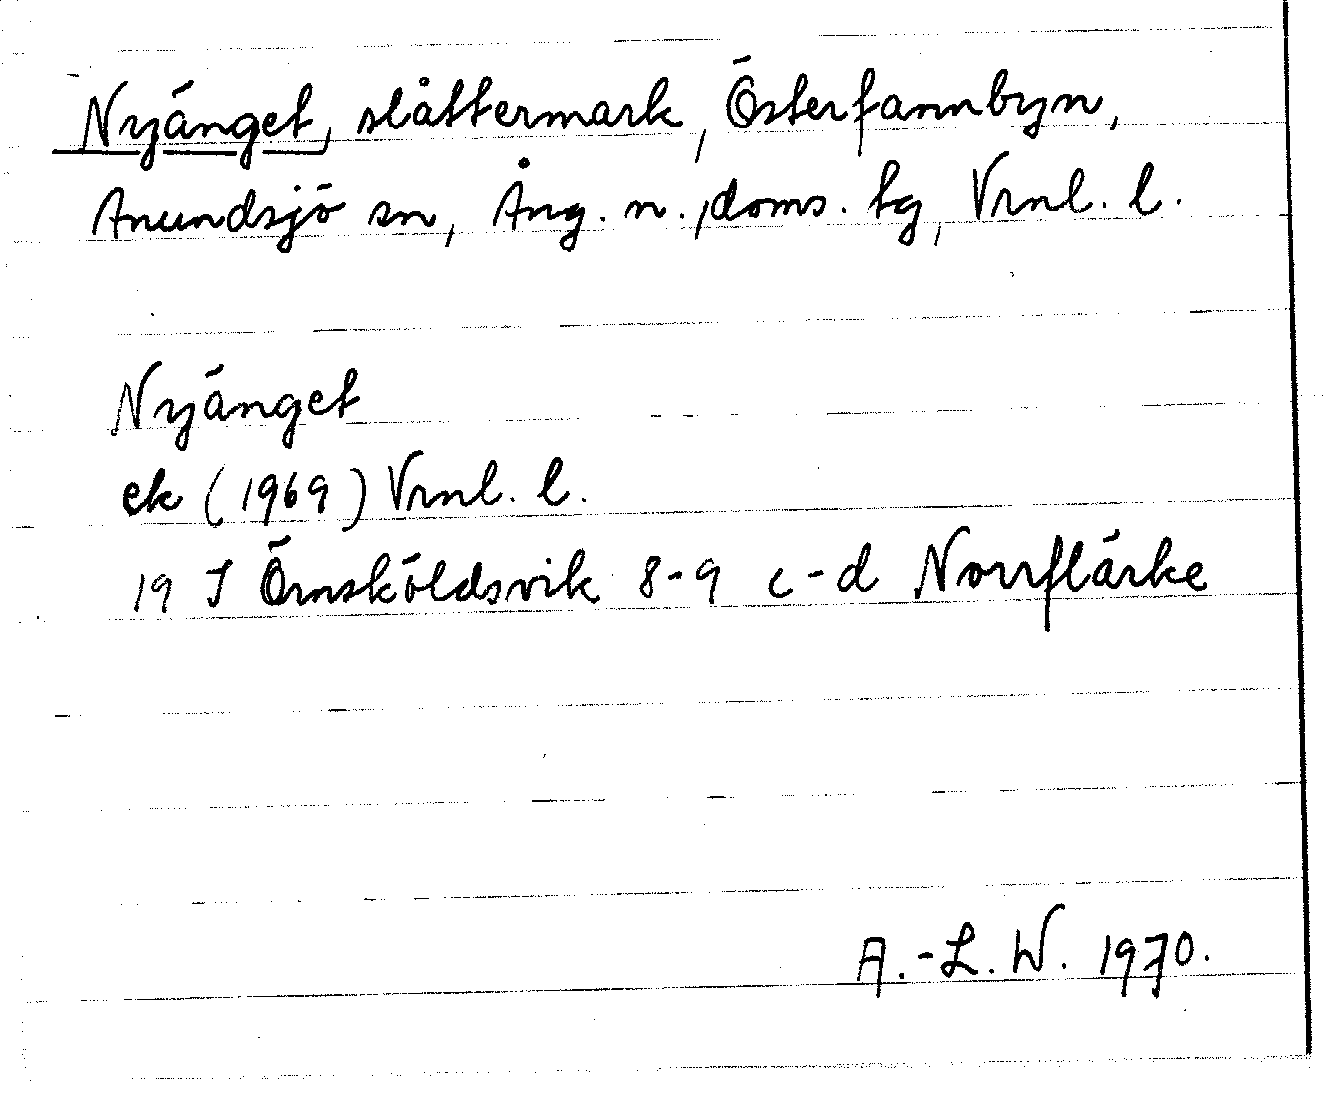 Nyänget, slåttermark, Österfannbyn,
Anundsjö sn, Ång. n., doms. hg, Vrnl. l.
Nyänget
ek (1969) Vrnl. l.
19 J Örnsköldsvik 8-9 c-d Norrflärke
A.-L. W. 1970.